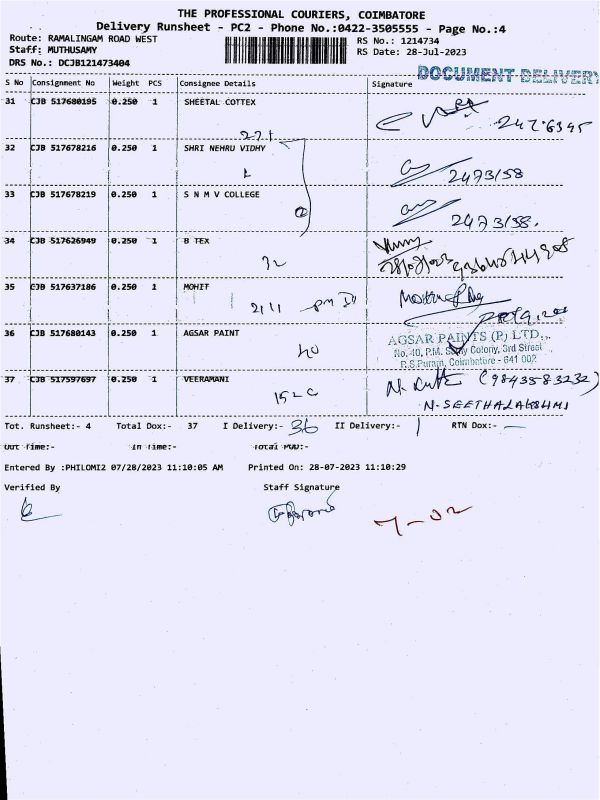 THE PROFESSIONAL COURIERS, COIMBATORE
Delivery Runsheet - PC2 - Phone No.:0422-3505555 - Page No.:4
Route: RAMALINGAM ROAD WEST
RS No.: 1214734
Staff: MUTHUSAMY
RS Date: 28-Jul-2023
DRS No.: DCJB121473404
DOCUMENT DELIVERY
S No Consignment No Weight PCS Consignee Details Signature
31 CJB 517680195 0.250 1 SHEETAL COTTEX
221
32 CJB 517678216 0.250 1 SHRI NEHRU VIDHY
2473158
33 CJB 517678219 0.250 1 S N M V COLLEGE
2473158.
34 CJB 517626949 0.250 1 B TEX
32
35 CJB 517637186 0.250 1 MOHIT
2111
36 CJB 517680143 0.250 1 AGSAR PAINT
40
AGSAR PAINTS (P) LTD.,
No. 40, P.M. Samy Colony, 3rd Street
R.S.Puram, Coimbatore - 641 002
37 CJB 517597697 0.250 1 VEERAMANI
152C
(9843583232)
N. SEETHALAKSHMI
Tot. Runsheet:- 4 Total Dox:- 37 I Delivery:- 36 II Delivery:- 1 RTN Dox:- —
Out Time:- In Time:- Total POD:-
Entered By :PHILOMI2 07/28/2023 11:10:05 AM Printed On: 28-07-2023 11:10:29
Verified By Staff Signature
7-02